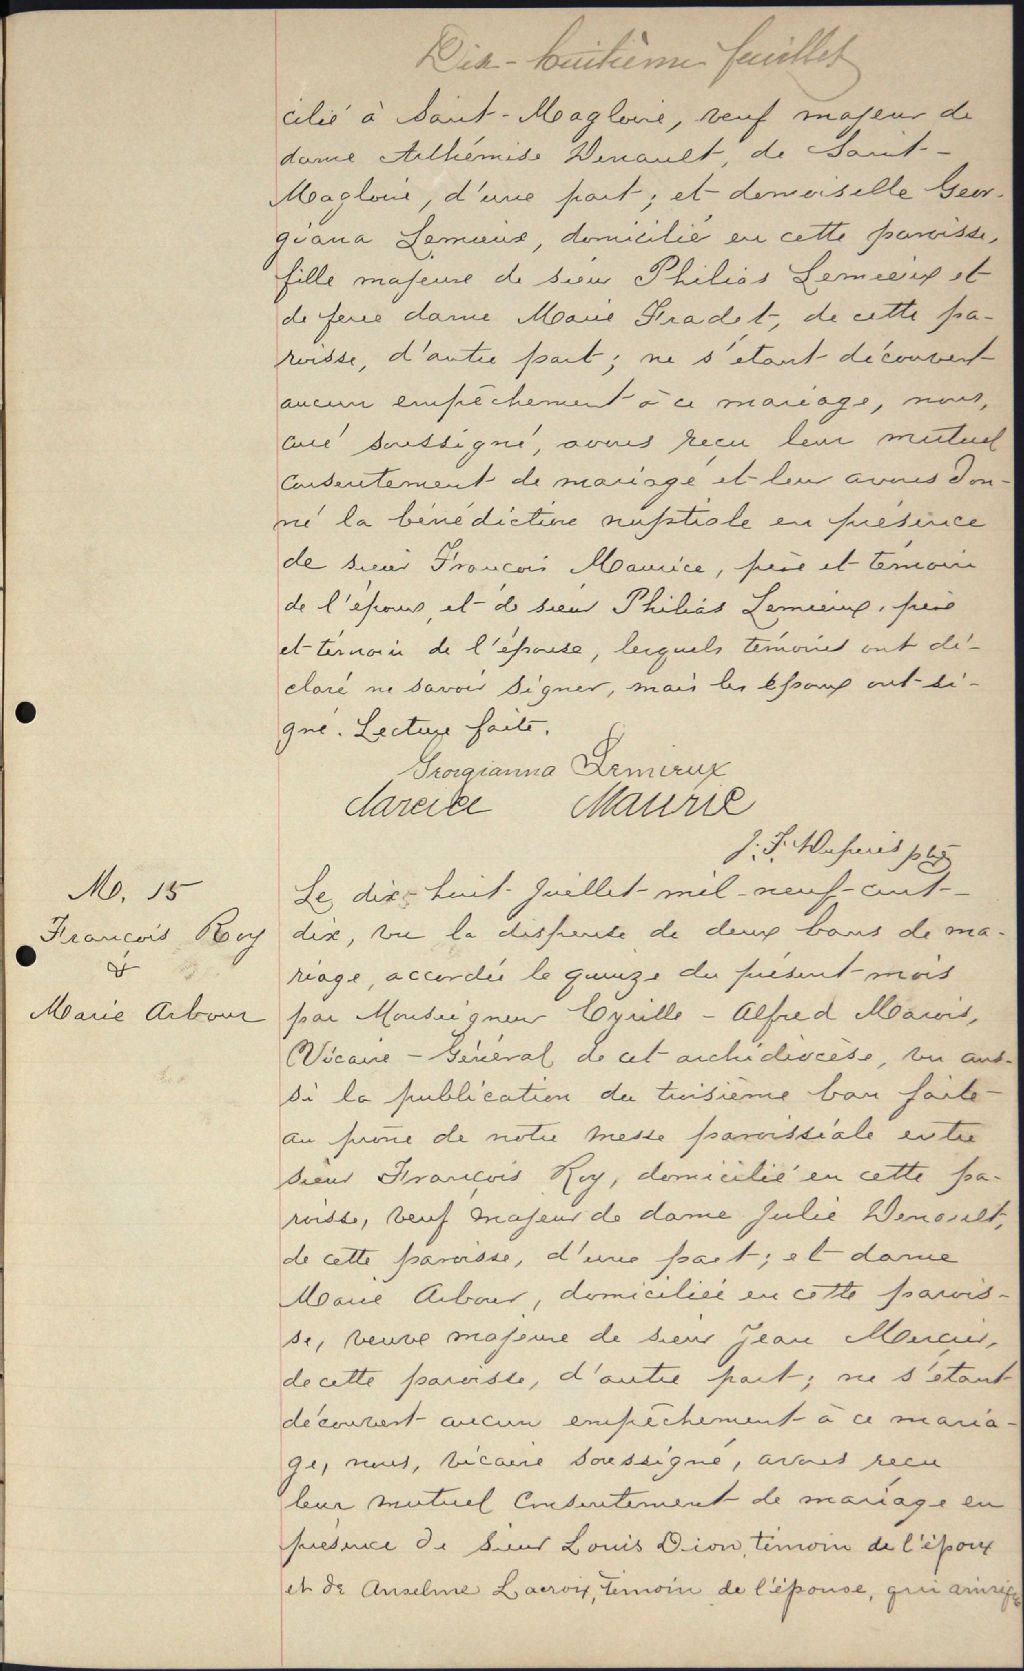 Dix-huitième feuillet
cilié à Saint-Magloire, veuf majeur de
dame Arthémise Denault, de Saint-
Magloire, d'une part; et demoiselle Geor-
giana Lemieux, domicilié en cette paroisse,
fille majeure de sieur Philias Lemieux et
de feue dame Marie Fradet, de cette pa-
roisse, d'autre part; ne s'étant découvert
aucun empêchement à ce mariage, nous,
curé soussigné, avons reçu leur mutuel
consentement de mariage et leur avons don-
né la bénédiction nuptiale en présence
de sieur François Maurice, père et témoin
de l'époux, et de sieur Philias Lemieux, père
et témoin de l'épouse, lesquels témoins ont dé-
claré ne savoir signer, mais les époux ont si-
gné. Lecture faite.
Georgianna Lemieux
Narcice Maurice
J. F. Dupuis ptre
M. 15
François Roy
&
Marie Arbour
Le dix-huit Juillet mil-neuf-cent-
dix, vu la dispense de deux bans de ma-
riage, accordée le quinze du présent mois
par Monseigneur Cyrille-Alfred Marois,
Vicaire-Général de cet archidiocèse, vu aus-
si la publication du troisième ban faite
au prône de notre messe paroissiale entre
sieur François Roy, domicilié en cette pa-
roisse, veuf majeur de dame Julie Denault,
de cette paroisse, d'une part; et dame
Marie Arbour, domiciliée en cette parois-
se, veuve majeure de sieur Jean Mercier,
de cette paroisse, d'autre part; ne s'étant
découvert aucun empêchement à ce maria-
ge, nous, vicaire soussigné, avons reçu
leur mutuel consentement de mariage en
présence de sieur Louis Dion, témoin de l'époux
et de Anselme Lacroix, témoin de l'épouse, qui ainsi que